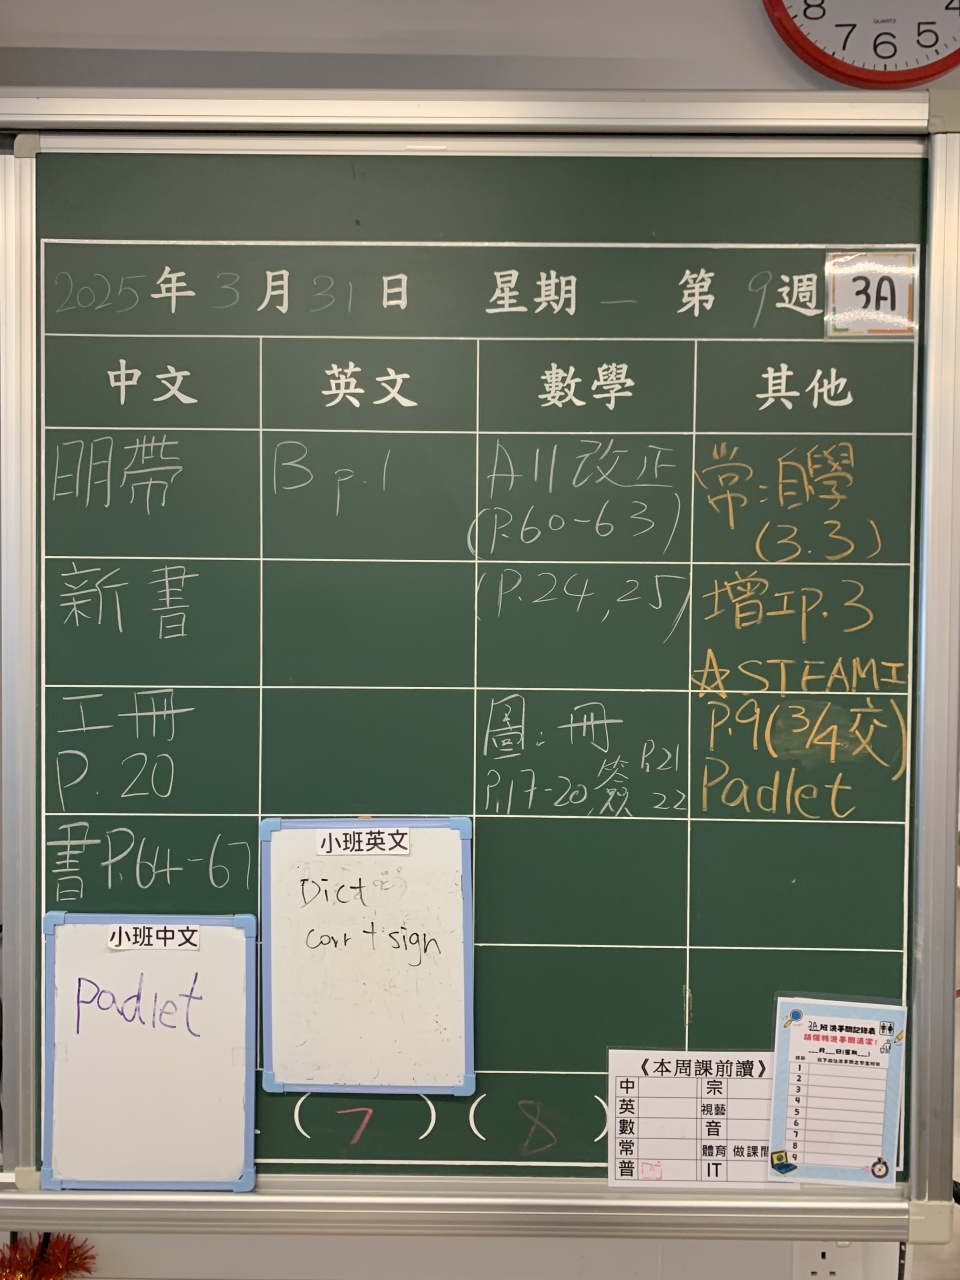 8 7 6 5 4
QUARTZ
2025年3月31日 星期一 第9週 3A
中文 英文 數學 其他
明帶
新書
工冊
P.20
書P.64-67
小班中文
padlet
B p.1
小班英文
Dict
corr + sign
A11改正
(P.60-63)
(P.24,25)
圖:冊
P.17-20,簽 P.21
22
常:自學
(3.3)
增工p.3
☆STEAM工
P.9(3/4交)
Padlet
(7) (8)
《本周課前讀》
中 宗
英 視藝
數 音
常 體育 做課間
普 IT
3A班洗手間記錄表
請保持洗手間清潔!
__月__日(星期__)
1
2
3
4
5
6
7
8
9